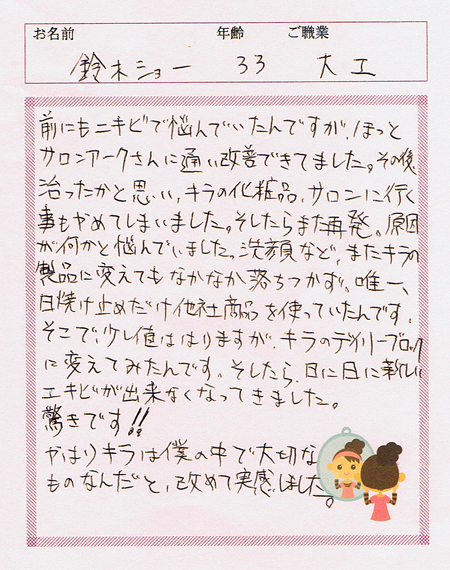 お名前 年齢 ご職業
鈴木ショー 33 大工
前にもニキビで悩んでいたんですが、ほっと
サロンアークさんに通い改善できてました。その後
治ったかと思い、キラの化粧品、サロンに行く
事もやめてしまいました。そしたらまた再発。原因
が何かと悩んでいました。洗顔など、またキラの
製品に変えてもなかなか落ちつかず、唯一、
日焼け止めだけ他社商品を使っていたんです。
そこで、少し値ははりますが、キラのデイリーブロック
に変えてみたんです。そしたら、日に日に新しい
ニキビが出来なくなってきました。
驚きです!!
やはりキラは僕の中で大切な
ものなんだと、改めて実感しました。